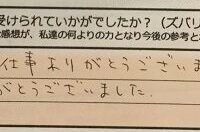 受けられていかがでしたか？（ズバリ
な感想が、私達の何よりの力となり今後の参考と
仕事ありがとうございま
がとうございました。